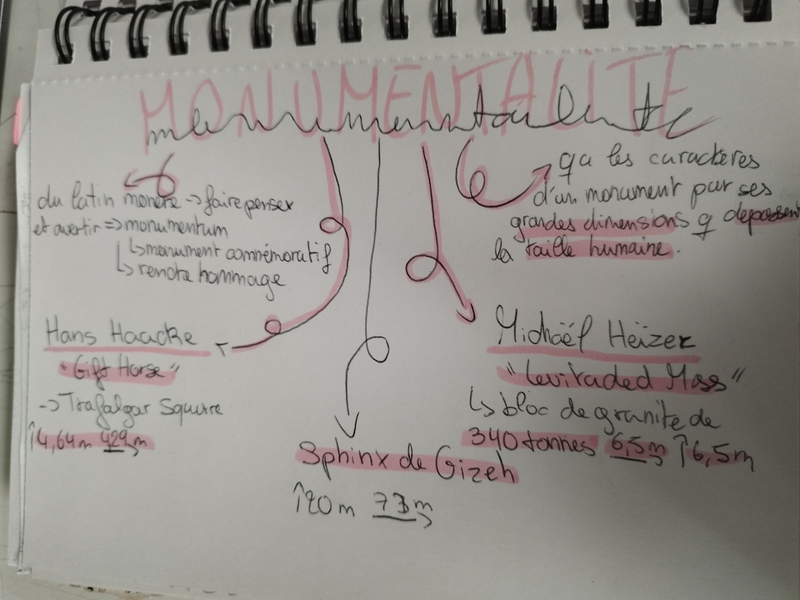 MONUMENTALITE
monumentalité
du latin monere -> faire penser
et avertir => monumentum
↳ monument commémoratif
↳ rendre hommage
q a les caractères
d'un monument par ses
grandes dimensions q dépassent
la taille humaine.
Hans Haacke
"Gift Horse"
-> Trafalgar Square
↑4,64m 429m
Sphinx de Gizeh
↑20m 73m
Michaël Heizer
"Levitaded Mass"
↳ bloc de granite de
340 tonnes 6,5m ↑6,5m